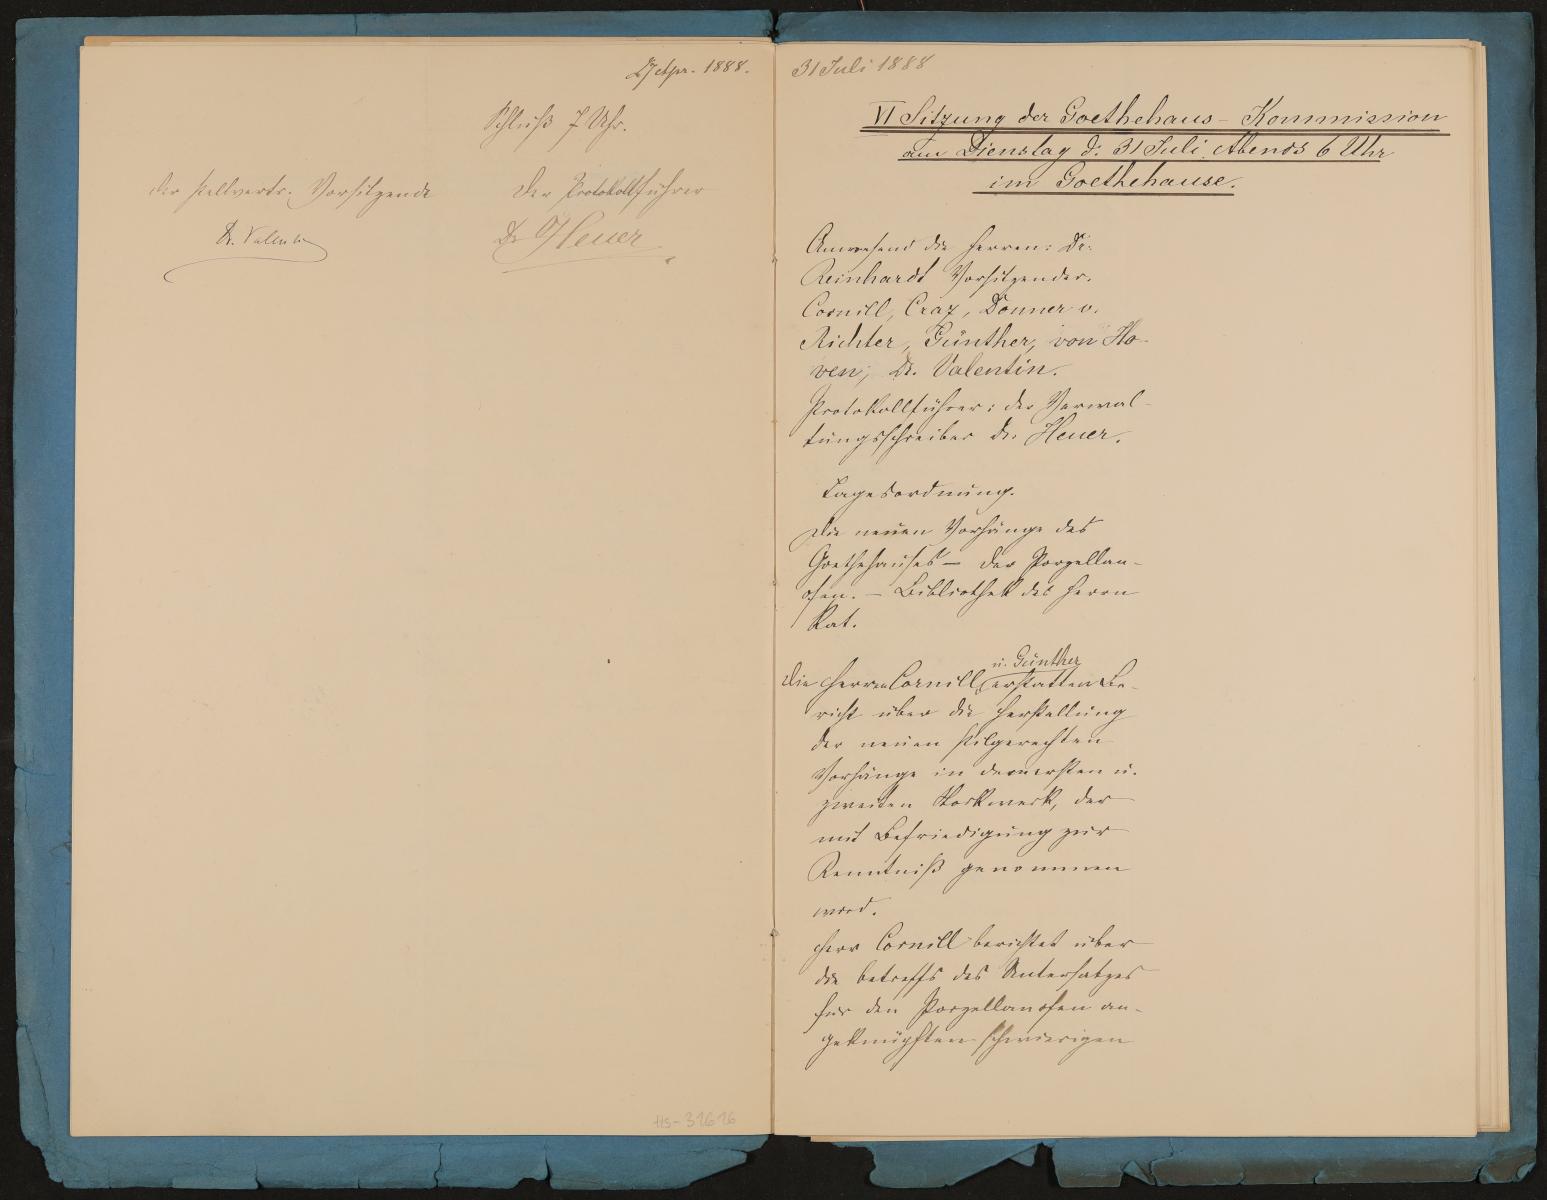 27 Apr. 1888.
Schluß 7 Uhr.
Der stellvertr. Vorsitzende
Der Protokollführer
Dr. Valentin
Dr Heuer
Hs-31616
31 Juli 1888
VI Sitzung der Goethehaus-Kommission
am Dienstag d. 31 Juli Abends 6 Uhr
im Goethehause.
Anwesend die Herren: Dr.
Reinhardt Vorsitzender.
Cornill, Craz, Donner v.
Richter, Günther, von Ho-
ven, Dr. Valentin.
Protokollführer: der Verwal-
tungsschreiber Dr. Heuer.
Tagesordnung.
Die neuen Vorhänge des
Goethehauses – der Porzellan-
ofen. – Bibliothek des Herrn
Rat.
u. Günther
Die Herren Cornill erstatten Be-
richt über die Herstellung
der neuen stilgerechten
Vorhänge in dem ersten u.
zweiten Stockwerk, der
mit Befriedigung zur
Kenntniß genommen
wird.
Herr Cornill berichtet über
die betreffs des Untersatzes
für den Porzellanofen an-
geknüpften schwierigen